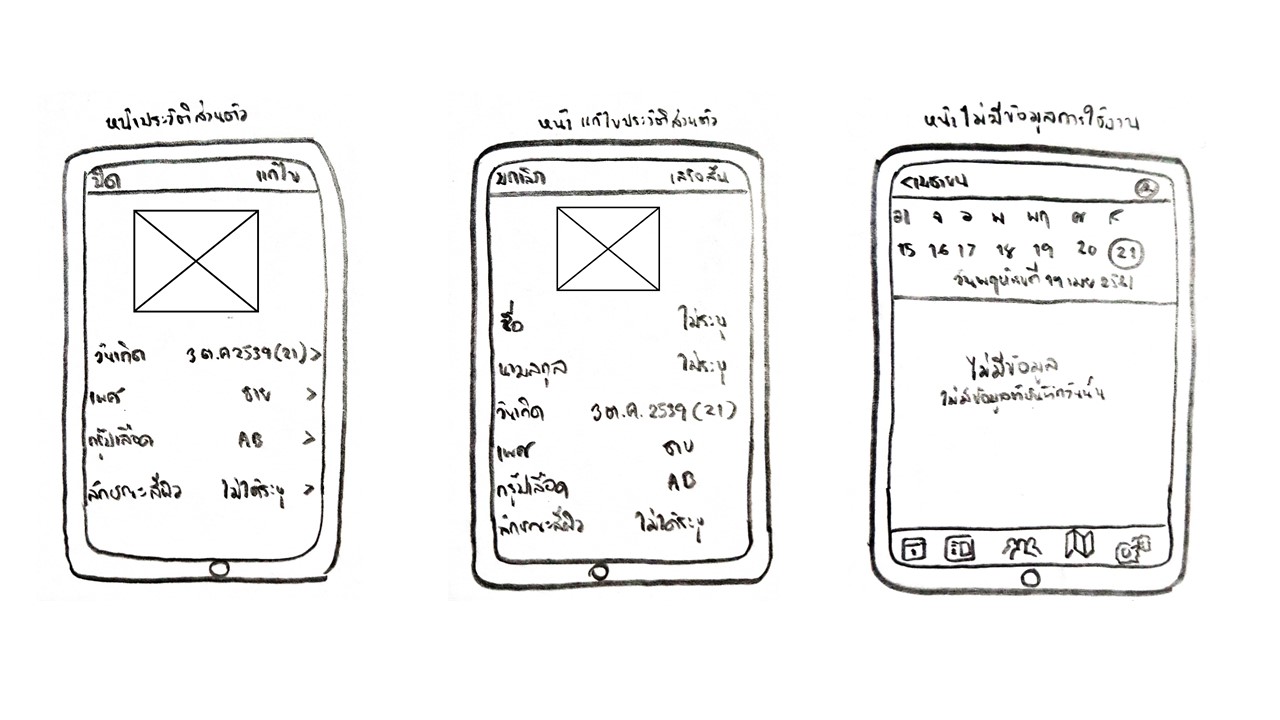 หน้าประวัติส่วนตัว
ปิด แก้ไข
วันเกิด 3 ต.ค 2539 (21) >
เพศ ชาย >
กรุ๊ปเลือด AB >
ลักษณะสีผิว ไม่ได้ระบุ >
หน้าแก้ไขประวัติส่วนตัว
ยกเลิก เสร็จสิ้น
ชื่อ ไม่ระบุ
นามสกุล ไม่ระบุ
วันเกิด 3 ต.ค. 2539 (21)
เพศ ชาย
กรุ๊ปเลือด AB
ลักษณะสีผิว ไม่ได้ระบุ
หน้าไม่มีข้อมูลการใช้งาน
<เมษายน
อา จ อ พ พฤ ศ ส
15 16 17 18 19 20 21
วันพฤหัสบดีที่ 19 เมษ 2561
ไม่มีข้อมูล
ไม่มีข้อมูลที่บันทึกวันนั้น